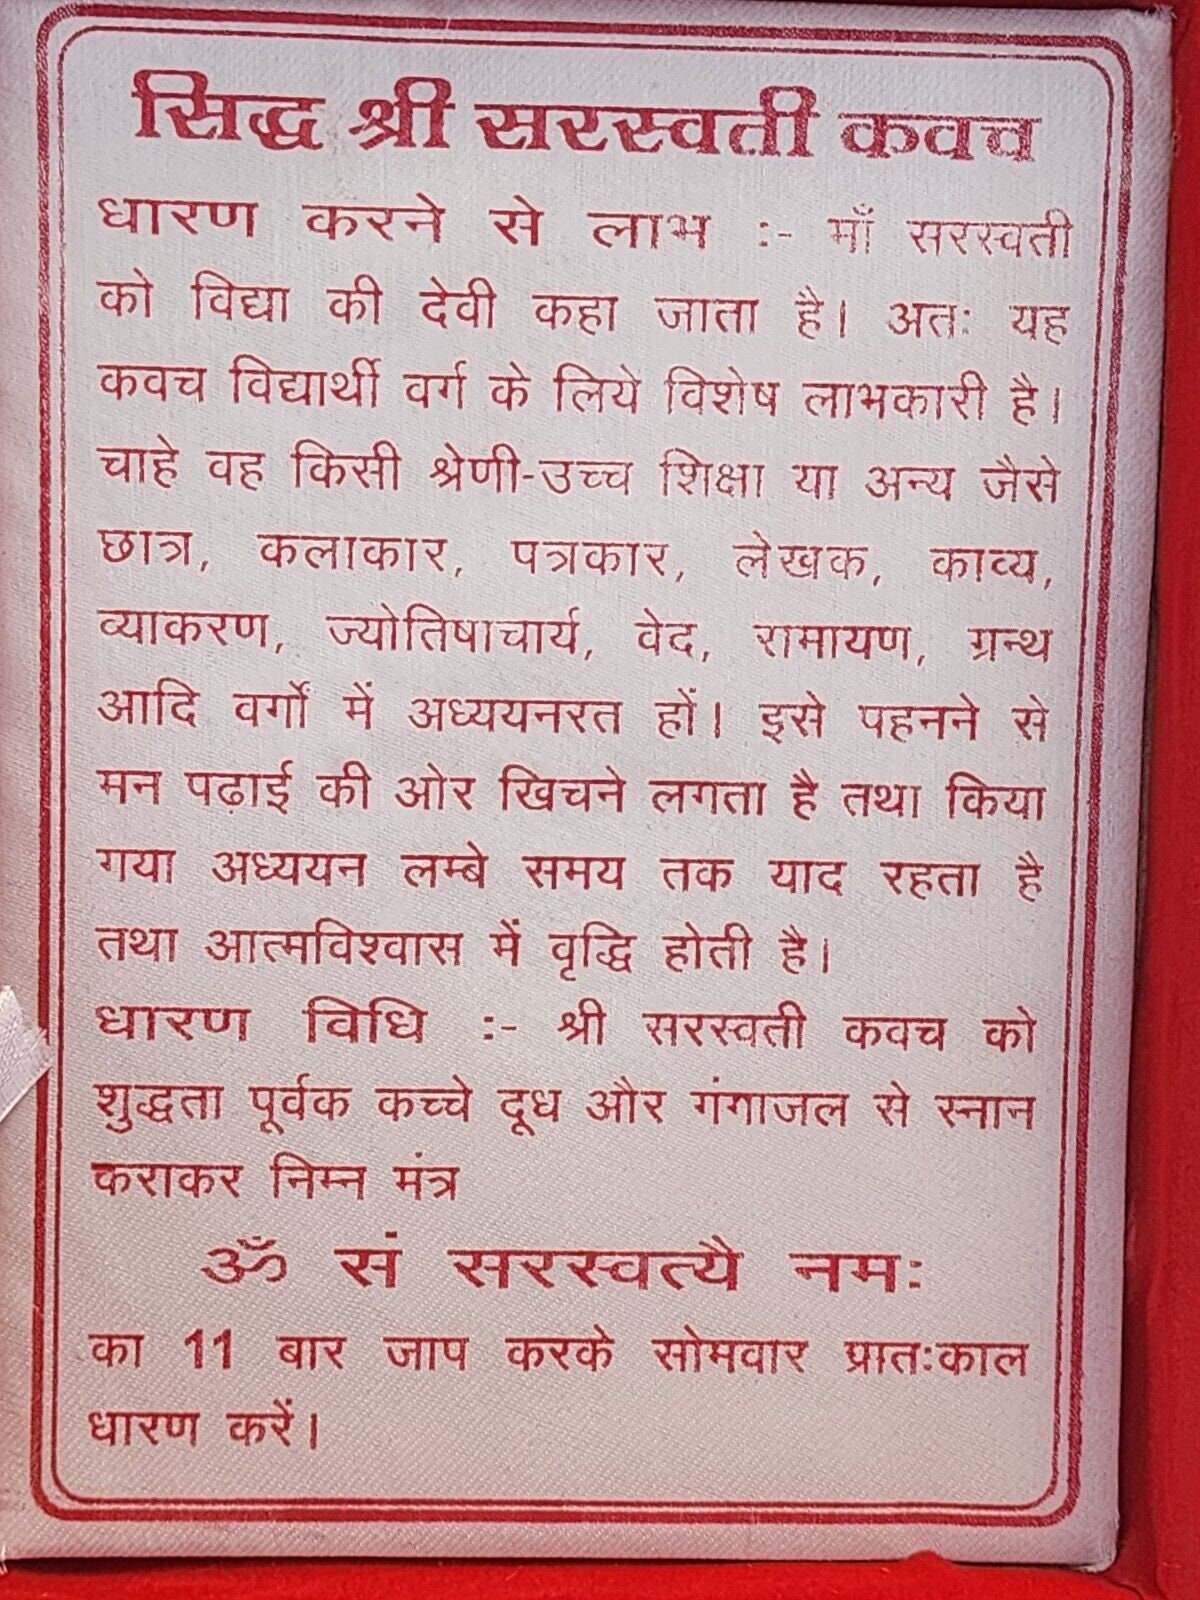 सिद्ध श्री सरस्वती कवच
धारण करने से लाभ :- माँ सरस्वती
को विद्या की देवी कहा जाता है। अतः यह
कवच विद्यार्थी वर्ग के लिये विशेष लाभकारी है।
चाहे वह किसी श्रेणी-उच्च शिक्षा या अन्य जैसे
छात्र, कलाकार, पत्रकार, लेखक, काव्य,
व्याकरण, ज्योतिषाचार्य, वेद, रामायण, ग्रन्थ
आदि वर्गों में अध्ययनरत हों। इसे पहनने से
मन पढाई की ओर खिचने लगता है तथा किया
गया अध्ययन लम्बे समय तक याद रहता है
तथा आत्मविश्वास में वृद्धि होती है।
धारण विधि :- श्री सरस्वती कवच को
शुद्धता पूर्वक कच्चे दूध और गंगाजल से स्नान
कराकर निम्न मंत्र
ॐ सं सरस्वत्यै नमः
का 11 बार जाप करके सोमवार प्रातःकाल
धारण करें।